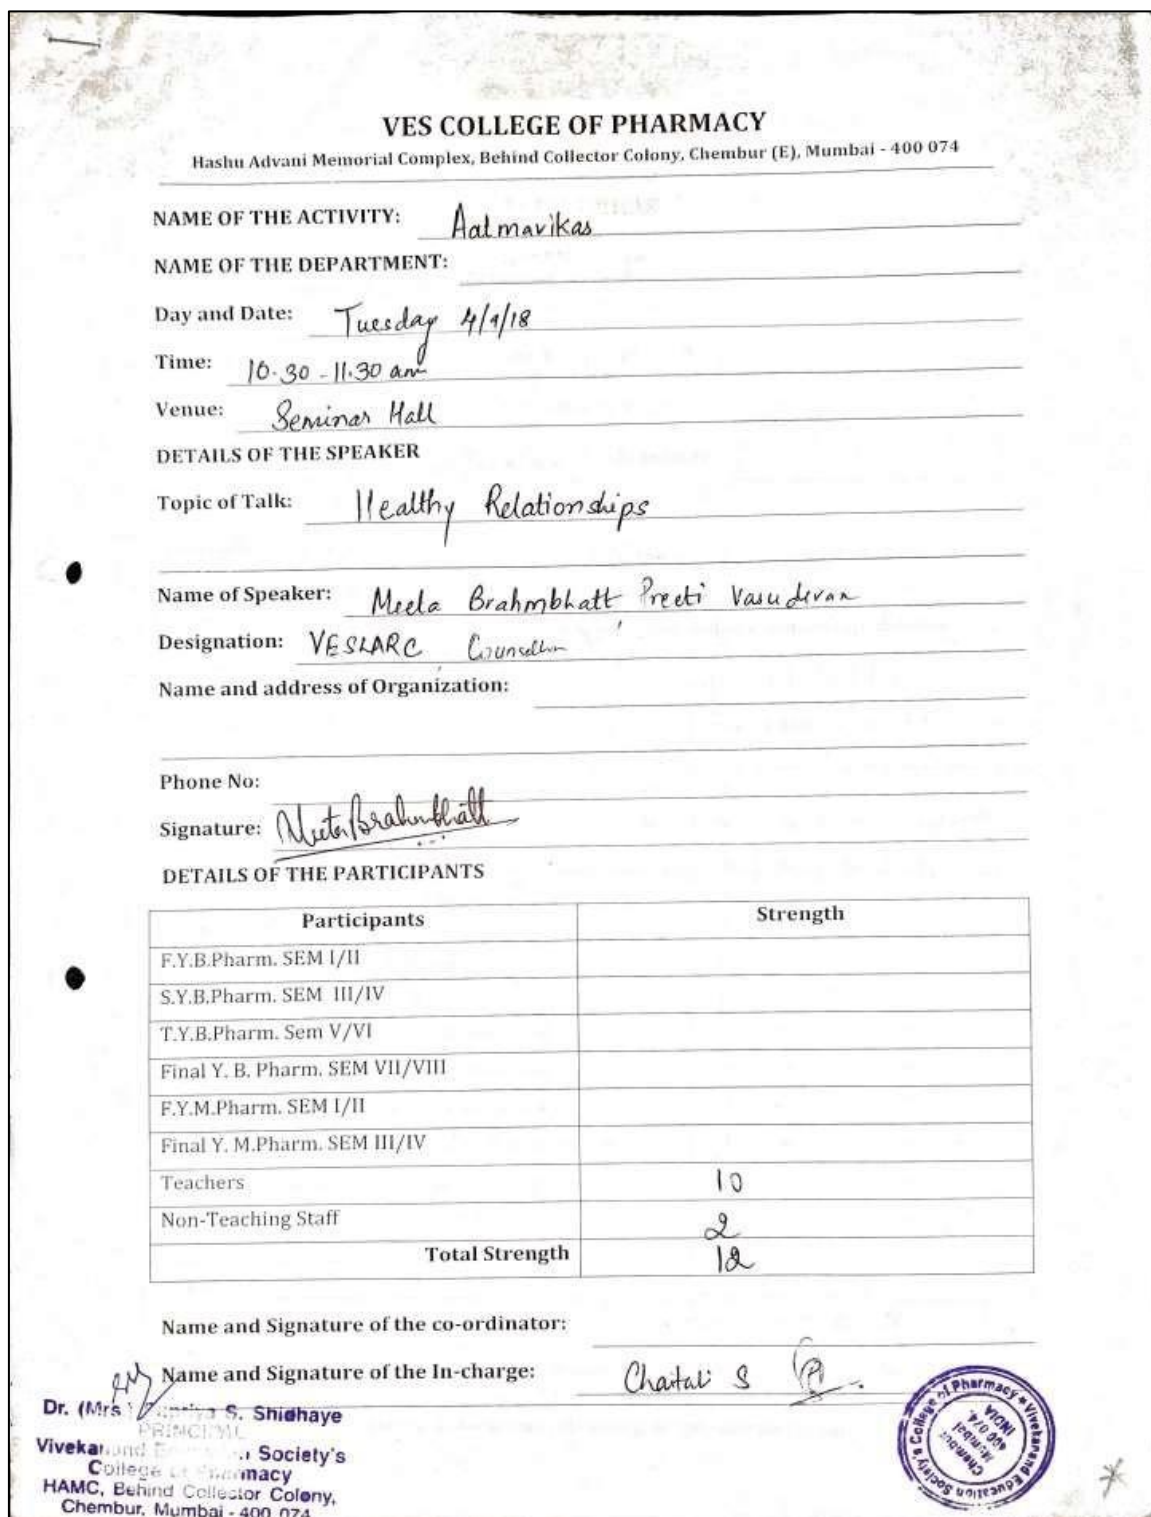 VES COLLEGE OF PHARMACY
Hashu Advani Memorial Complex, Behind Collector Colony, Chembur (E), Mumbai - 400 074
NAME OF THE ACTIVITY: Aatmavikas
NAME OF THE DEPARTMENT:
Day and Date: Tuesday 4/9/18
Time: 10.30 - 11.30 am
Venue: Seminar Hall
DETAILS OF THE SPEAKER
Topic of Talk: Healthy Relationships
Name of Speaker: Meeta Brahmbhatt, Preeti Vasudevan
Designation: VESLARC Counsellor
Name and address of Organization:
Phone No:
Signature: Meeta Brahmbhatt
DETAILS OF THE PARTICIPANTS
Participants Strength
F.Y.B.Pharm. SEM I/II
S.Y.B.Pharm. SEM III/IV
T.Y.B.Pharm. Sem V/VI
Final Y. B. Pharm. SEM VII/VIII
F.Y.M.Pharm. SEM I/II
Final Y. M.Pharm. SEM III/IV
Teachers 10
Non-Teaching Staff 2
Total Strength 12
Name and Signature of the co-ordinator:
Name and Signature of the In-charge: Chaitali S
Dr. (Mrs.) Supriya S. Shidhaye
PRINCIPAL
Vivekanand Education Society's
College of Pharmacy
HAMC, Behind Collector Colony,
Chembur, Mumbai - 400 074
Vivekanand Education Society's College of Pharmacy *
Chembur
Mumbai
400 074.
INDIA